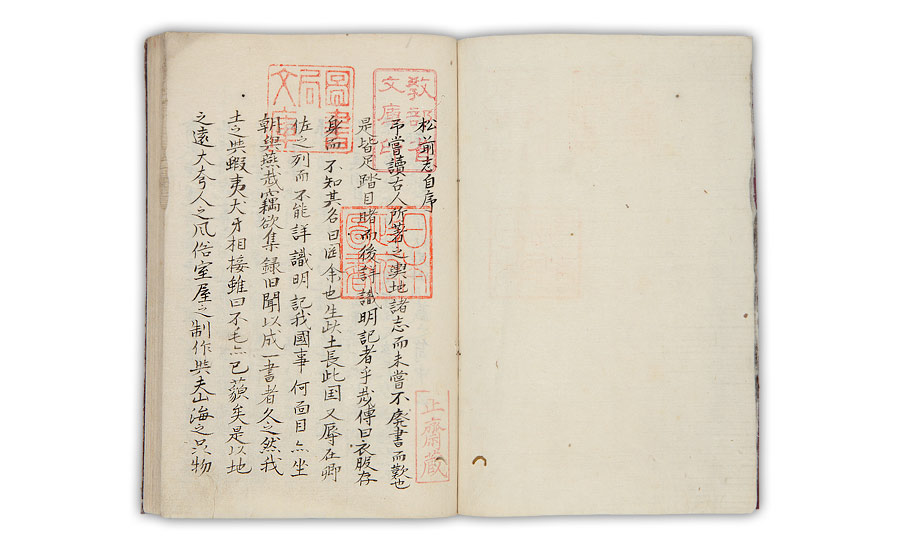 松前志自序
予嘗讀古人所著之輿地諸志而未嘗不廃書而歎也
是皆足踏目睹而後詳識明記者乎哉傳曰衣服存
身而不知其名曰罔余也生此土長此国又辱在卿
佐之列而不能詳識明記我國事何面目亦坐
朝與燕哉竊欲集録旧聞以成一書者久之然我
土之與蝦夷犬牙相接雖曰不毛亦已藐矣是以地
之遠大夸人之风俗室屋之制作與夫山海之只物
教部省文庫印
圖書局文庫
日本政府圖書
止齋蔵